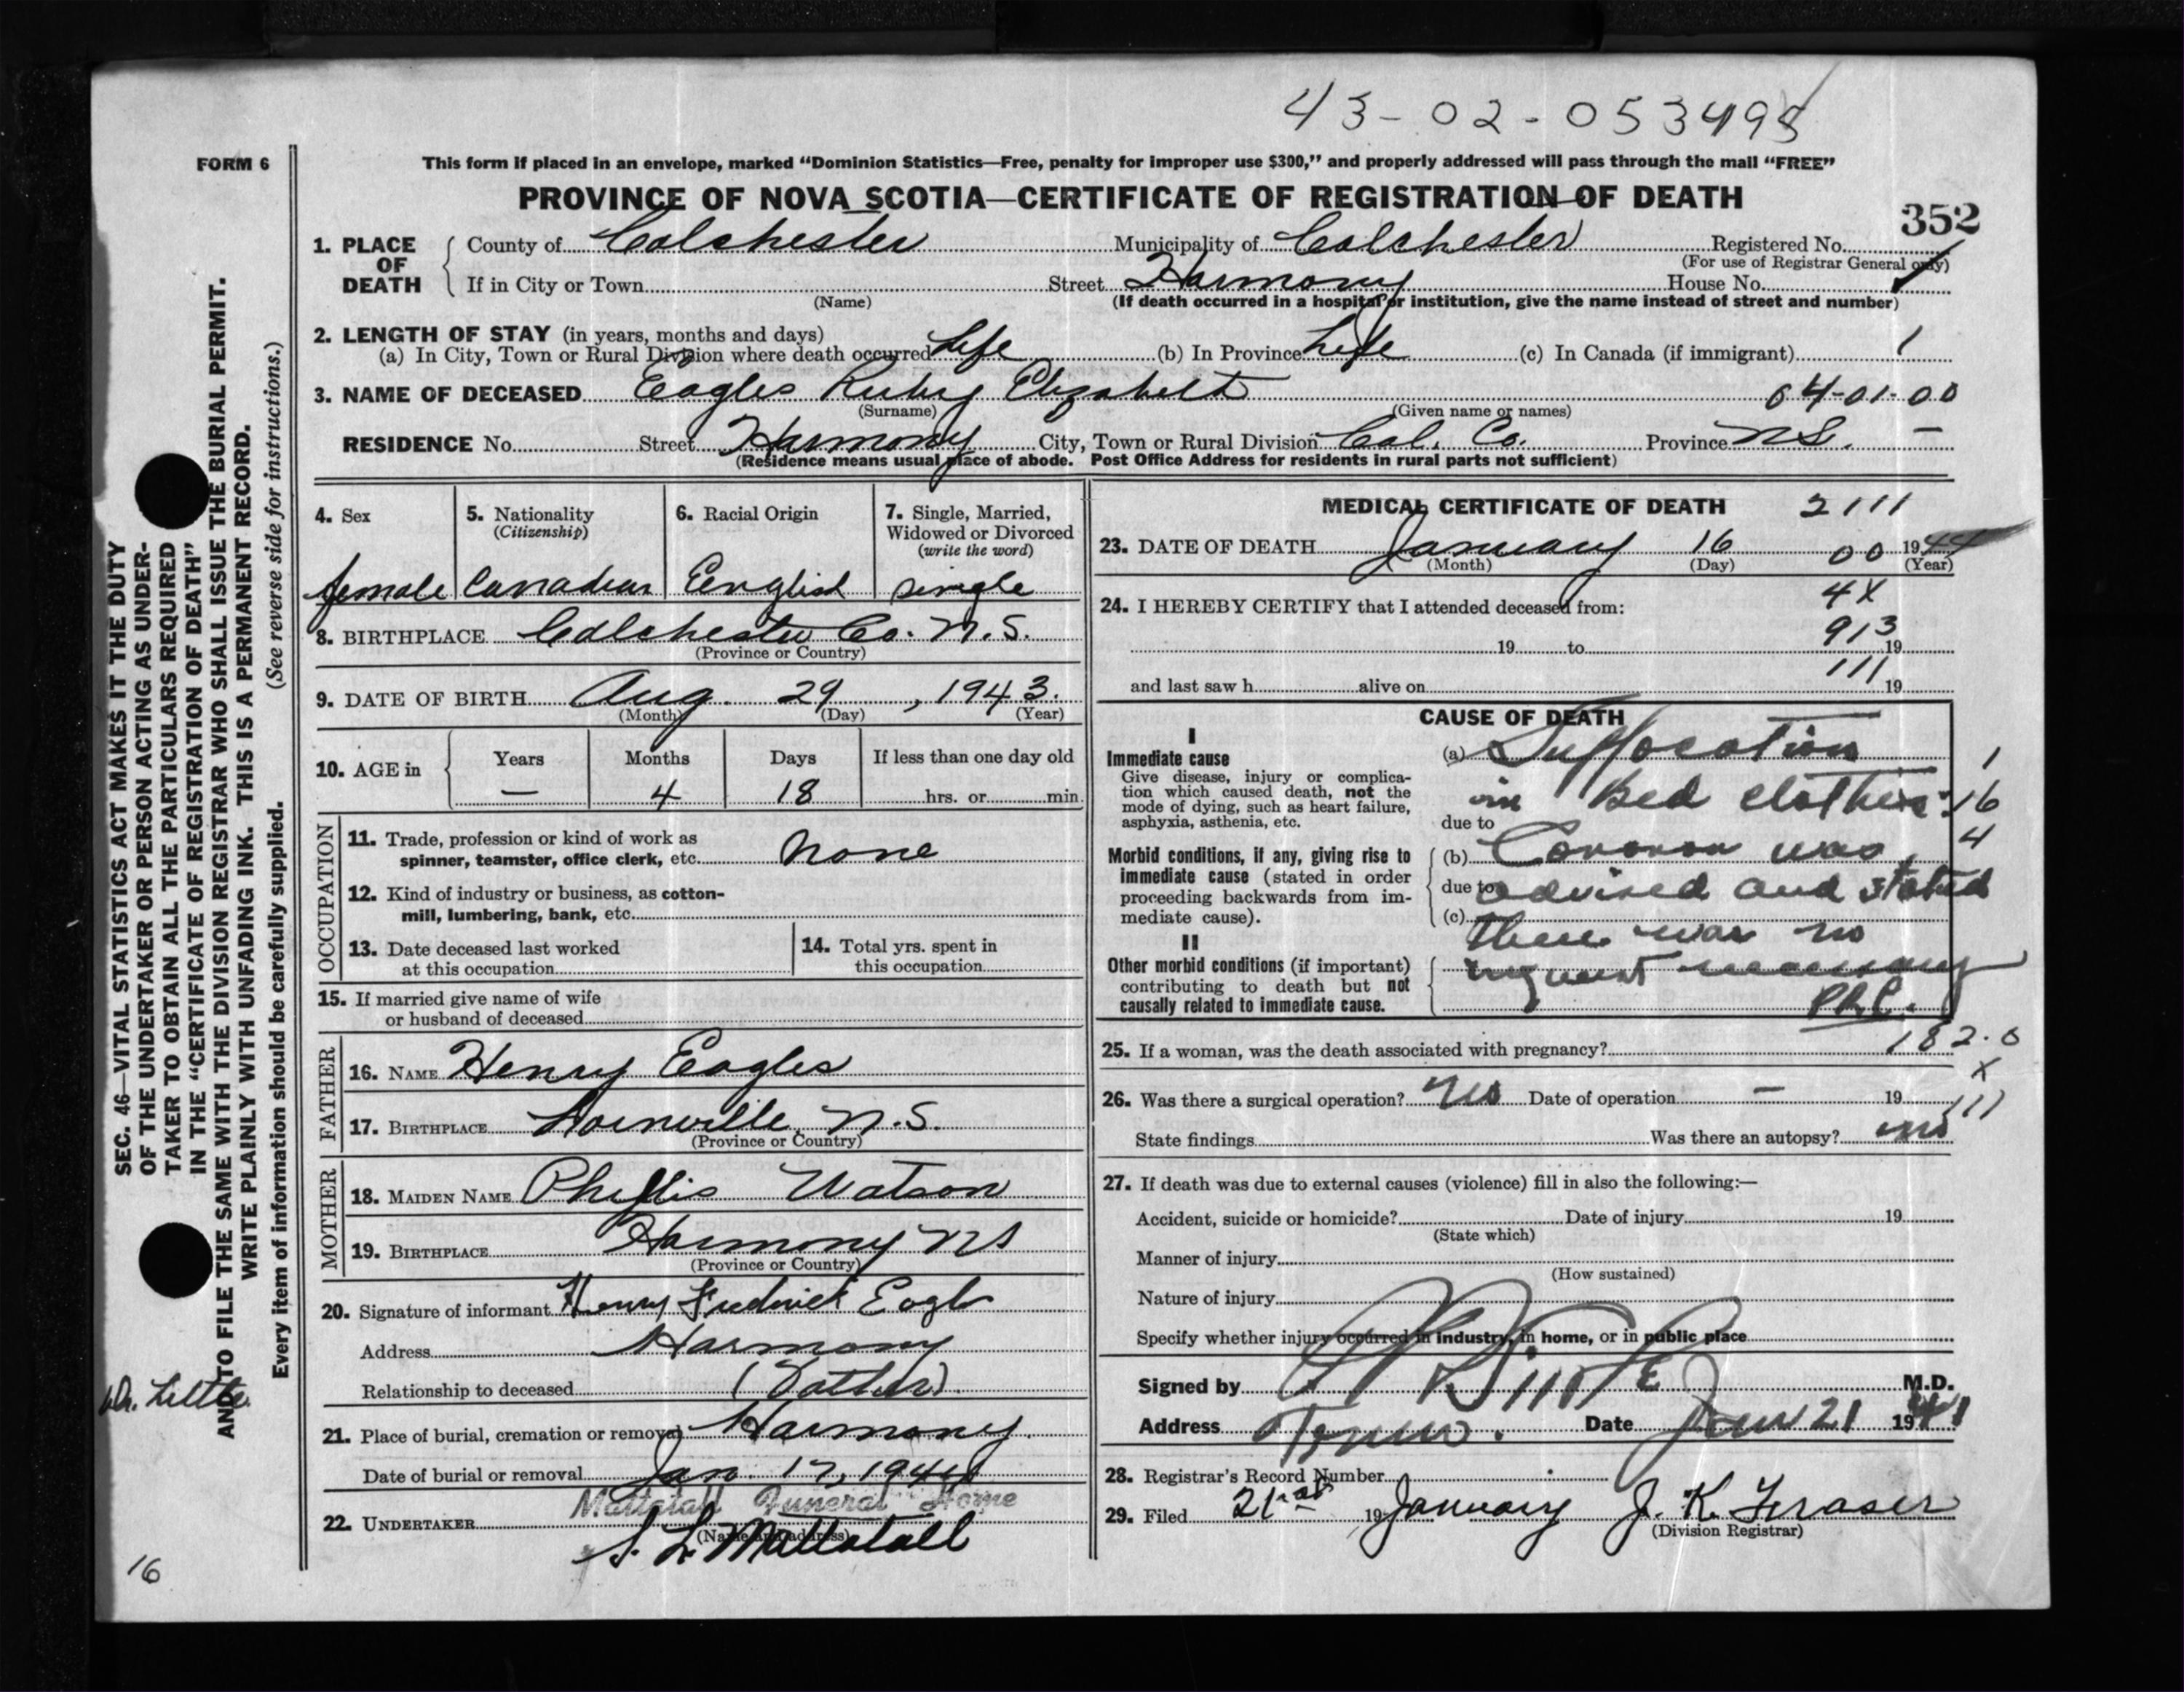 43-02-053498
FORM 6
This form if placed in an envelope, marked “Dominion Statistics—Free, penalty for improper use $300,” and properly addressed will pass through the mail “FREE”
PROVINCE OF NOVA SCOTIA—CERTIFICATE OF REGISTRATION OF DEATH
352
1. PLACE OF DEATH County of Colchester Municipality of Colchester Registered No.
(For use of Registrar General only)
If in City or Town Street Harmony House No.
(Name) (If death occurred in a hospital or institution, give the name instead of street and number)
2. LENGTH OF STAY (in years, months and days)
(a) In City, Town or Rural Division where death occurred Life (b) In Province Life (c) In Canada (if immigrant) 1
3. NAME OF DECEASED Eagles Ruby Elizabeth 64-01-00
(Surname) (Given name or names)
RESIDENCE No. Street Harmony City, Town or Rural Division Col. Co. Province N.S. –
(Residence means usual place of abode. Post Office Address for residents in rural parts not sufficient)
4. Sex
female
5. Nationality
(Citizenship)
Canadian
6. Racial Origin
English
7. Single, Married,
Widowed or Divorced
(write the word)
single
8. BIRTHPLACE Colchester Co. N.S.
(Province or Country)
9. DATE OF BIRTH Aug. 29, 1943.
(Month) (Day) (Year)
10. AGE in Years Months Days If less than one day old
— 4 18 hrs. or min.
OCCUPATION
11. Trade, profession or kind of work as
spinner, teamster, office clerk, etc. None
12. Kind of industry or business, as cotton-
mill, lumbering, bank, etc.
13. Date deceased last worked
at this occupation
14. Total yrs. spent in
this occupation
15. If married give name of wife
or husband of deceased
FATHER
16. NAME Henry Eagles
17. BIRTHPLACE N.S.
(Province or Country)
MOTHER
18. MAIDEN NAME Phyllis Watson
19. BIRTHPLACE Harmony NS
(Province or Country)
20. Signature of informant Henry Fredrick Eagles
Address Harmony
Relationship to deceased (Father)
21. Place of burial, cremation or removal Harmony.
Date of burial or removal Jan. 17, 1944
22. UNDERTAKER Mattatall Funeral Home
(Name and address)
S. L. Mattatall
MEDICAL CERTIFICATE OF DEATH 2111
23. DATE OF DEATH January 16 00 1944
(Month) (Day) (Year)
24. I HEREBY CERTIFY that I attended deceased from: 4X
913
19 to 19
111
and last saw h alive on 19
CAUSE OF DEATH
I
Immediate cause
Give disease, injury or complica-
tion which caused death, not the
mode of dying, such as heart failure,
asphyxia, asthenia, etc.
Morbid conditions, if any, giving rise to
immediate cause (stated in order
proceeding backwards from im-
mediate cause).
II
Other morbid conditions (if important)
contributing to death but not
causally related to immediate cause.
(a) Suffocation 1
in Bed clothes 16
due to 4
(b) Coroner was
due to advised and stated
(c) there was no
inquest necessary
182.0
25. If a woman, was the death associated with pregnancy?
X
26. Was there a surgical operation? No Date of operation — 19
111
State findings Was there an autopsy? no
27. If death was due to external causes (violence) fill in also the following:—
Accident, suicide or homicide? Date of injury 19
(State which)
Manner of injury
(How sustained)
Nature of injury
Specify whether injury occurred in industry, in home, or in public place
Signed by M.D.
Address Truro. Date Jan 21 194
28. Registrar's Record Number
29. Filed 21st 19 January J. K. Fraser
(Division Registrar)
SEC. 46—VITAL STATISTICS ACT MAKES IT THE DUTY
OF THE UNDERTAKER OR PERSON ACTING AS UNDER-
TAKER TO OBTAIN ALL THE PARTICULARS REQUIRED
IN THE “CERTIFICATE OF REGISTRATION OF DEATH”
AND TO FILE THE SAME WITH THE DIVISION REGISTRAR WHO SHALL ISSUE THE BURIAL PERMIT.
WRITE PLAINLY WITH UNFADING INK. THIS IS A PERMANENT RECORD.
Every item of information should be carefully supplied. (See reverse side for instructions.)
Dr. Little
16